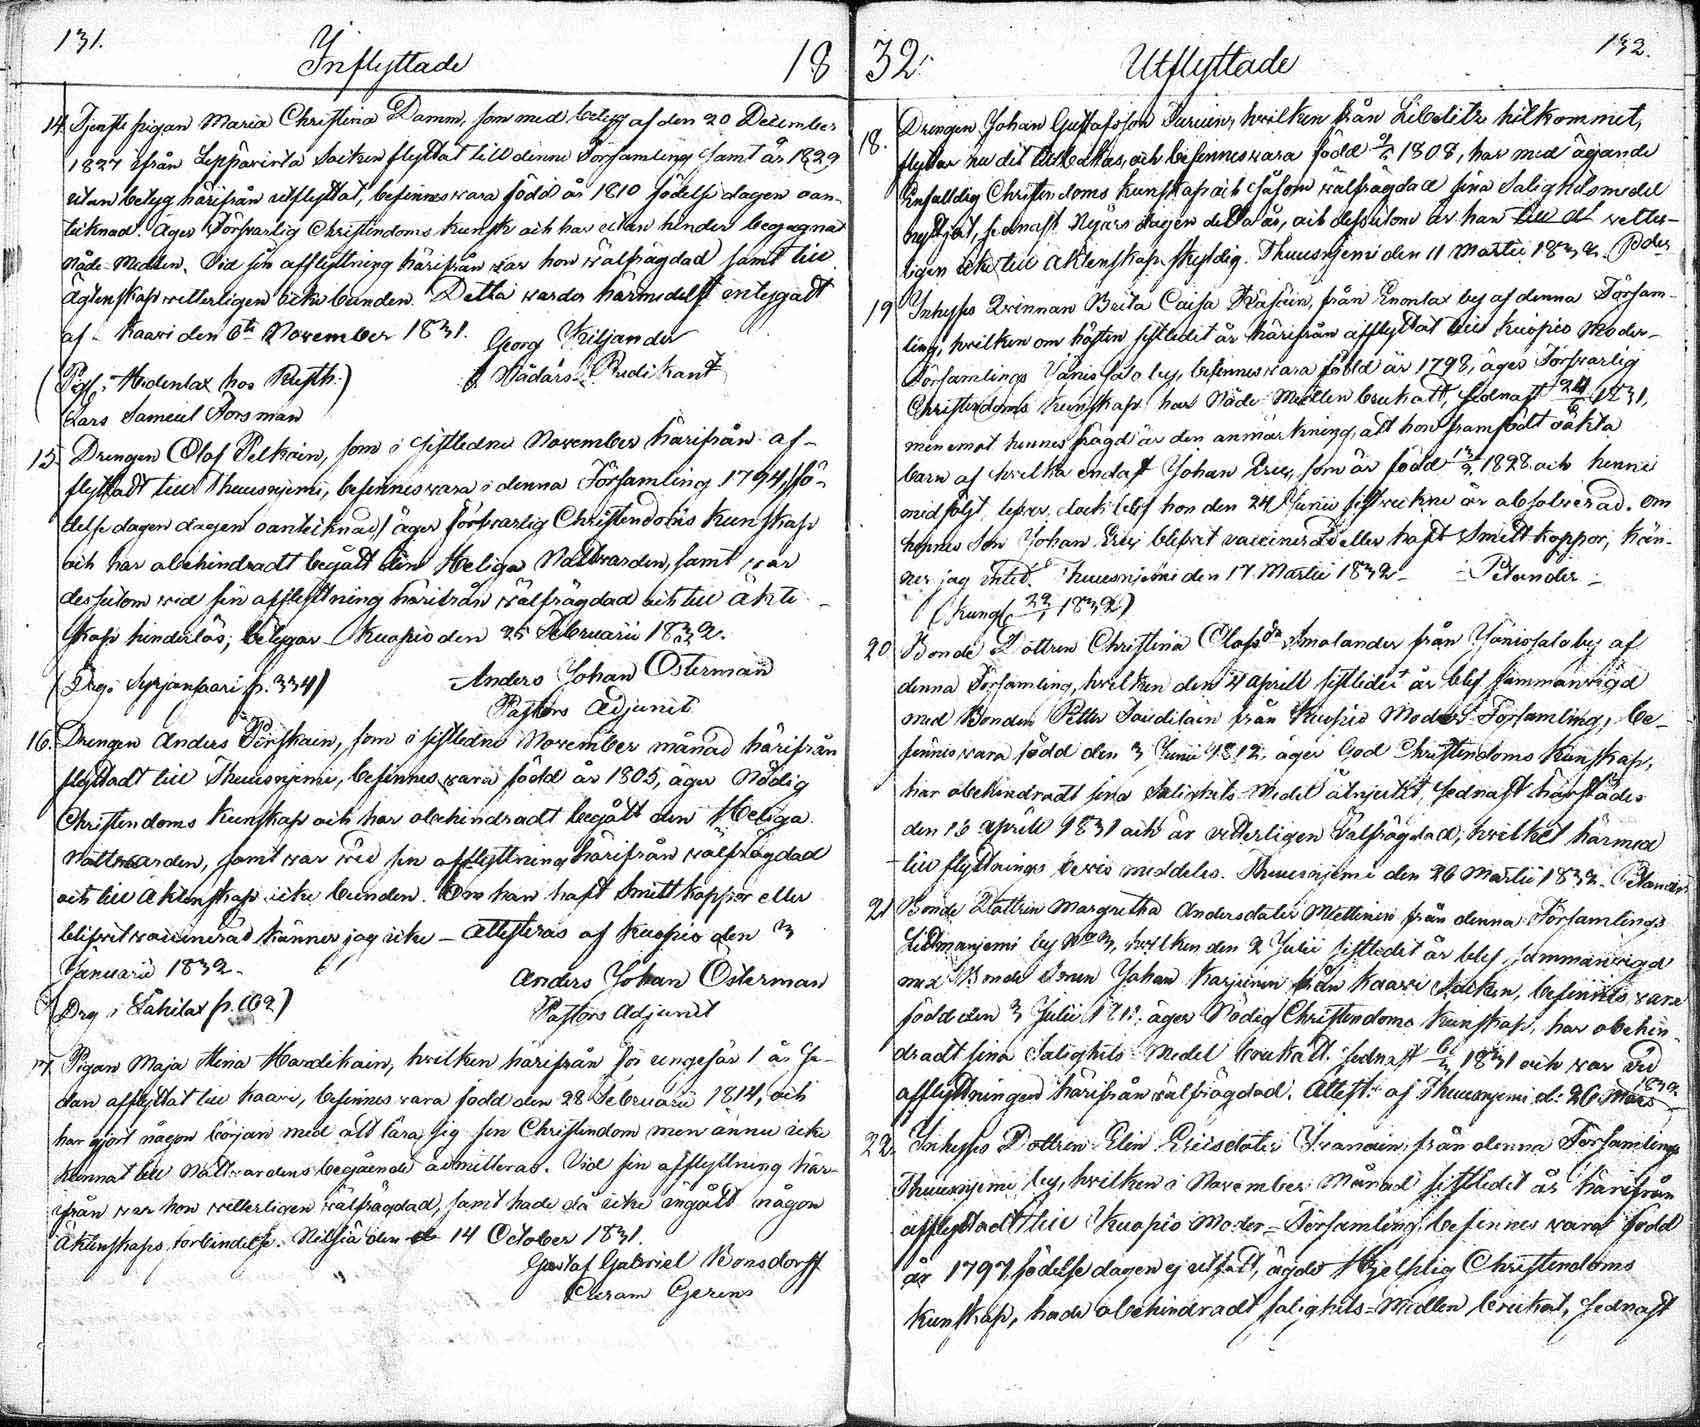 131.
Inflyttade
18
14. Tjenste pigan Maria Christina Damm, som med betyg af den 20 December
1827 ifrån Leppävirta Socken flyttat till denne Församling samt år 1829
utan betyg härifrån utflyttat, befinnes vara född år 1810 födelse dagen oan-
tecknad. Äger Försvarlig Christendoms kunsk: och har utan hinder begagnat
Nåde-Medlen. Vid sin afflyttning härifrån var hon wälfrägdad samt till
Äctenskap vetterligen icke bunden. Detta warder härmedelst intygadt
af - Kaavi den 6te November 1831.
Georg Kiljander
Nådårs Predikant
( Hedenlax hos )
Lars Samuel Forsman
15. Drengen Olof Pelkäin, som i sistledne November härifrån af-
flyttadt till Thuusnjemi, befinnes vara i denna Församling 1794, /fö-
delse dagen dagen oantecknad/ äger försvarlig Christendoms kunskap
och har obehindradt begått den Heliga Nattvarden, samt var
dessutom wid sin afflyttning härifrån wälfrägdad och till äkte-
skap hinderlös; betygar Kuopio den 25 Februarii 1832.
Anders Johan Österman
Pastors Adjunct
(Drg i Syrjansaari p. 334)
16. Drengen Anders , som i sistledne November månad härifrån
flyttadt till Thuusnjemi, befinnes vara född år 1805, äger Nödig
Christendoms kunskap och har obehindradt begått den Heliga
Nattwarden, samt var wid sin afflyttning härifrån wälfrägdad
och till äktenskap icke bunden. Om han haft Smittkoppor eller
blifvit vaccinerad känner jag icke - Attesteras af Kuopio den 3
Januarii 1832.
Anders Johan Österman
Pastors Adjunct
(Drg i Lahilax p. 102)
17. Pigan Maja Hena Hardikain, hvilken härifrån för ungefär 1 år Se-
dan afflyttat till Kaavi, befinnes vara född den 28 Februarii 1814, och
har gjort någon början med att lära sig sin Christendom men ännu icke
kunnat till Nattvardens begående admitteras. Vid sin afflyttning här-
ifrån var hon vetterligen wälfrägdad, samt hade då icke ingått någon
Äktenskaps förbindelse. Nilsiä den 14 October 1831.
Gustaf Gabriel Bonsdorff
Curam Gerens
32.
Utflyttade
132.
18. Drengen Johan Gustafsson , hvilken från Libelitz hitkommit,
flyttar nu dit tillbakas, och befinnes vara född 1808, har med ägande
Enfaldig Christendoms kunskap och såsom wälfrägdad sina Salighetsmedel
nyttjat, sednast Nyårs dagen detta år, och dessutom är han till vetter-
ligen icke till äktenskap skyldig. Thuusnjemi den 11 Martii 1832.
19. Inhyses Qvinnan Brita Caisa , från Enonlax by af denna Försam-
ling, hvilken om hösten sistledit år härifrån afflyttat till Kuopio Moder-
Församlings Jänissalo by, befinnes vara född år 1798, äger Försvarlig
Christendoms kunskap har Nåde-Medlen brukatt, sednast 24/6 1831,
men emot hennes frägd är den anmärkning, att hon framfödt oäkta
barn af hvilka endast Johan Eric, som är född 1828 och henne
medföljt, lefver, dock blef hon den 24 Junii absolverad. Om
hennes Son Johan Eric blifvit vaccinerad eller haft Smitt koppor, kän-
ner jag intet. Thuusnjemi den 17 Martii 1832 - Petander -
(kung( 1832)
20. Bonde Dottren Christina Olofs dr Smolander från Jänissalo by af
denna Församling, hvilken den 4 aprill sistledit år blef sammanvigd
med Bonden Petter från Kuopio Moder Församling, be-
finnes vara född den 3 Junii 1812, äger God Christendoms kunskap,
har obehindradt sina Salighets-Medel åtnjutit, sednast härstädes
den 13 aprill 1831 och är vetterligen Välfrägdad, hvilket härmed
till flyttnings bevis meddeles. Thuusnjemi den 26 Martii 1832. Petander
21. Bonde Dottrin Margretha Andersdoter Mettinin från denna Församlings
Litmanjemi by No 3, hvilken den 2 Julii sistledit år blef sammanvigd
med Bonde Sonen Johan Karjunen från Kaavi Socken, befinnes vara
född den 3 Julii , äger Nödig Christendoms kunskap, har obehin-
dradt sina Salighets-Medel brukatt sednast 1831 och var vid
afflyttningen härifrån wälfrägdad. Attest: af Thuusnjemi d: 26 Mars 1832
22. Inhyses Dottren Elin Ericsdoter från denna Församlings
Thuusnjemi by, hvilken i November Månad sistledit år härifrån
afflyttadt till Kuopio Moder-Församling befinnes vara född
år 1797 födelse dagen ej utsatt, ägde Hjelplig Christendoms
kunskap, hade obehindradt salighets-Medlen brukat, sednast